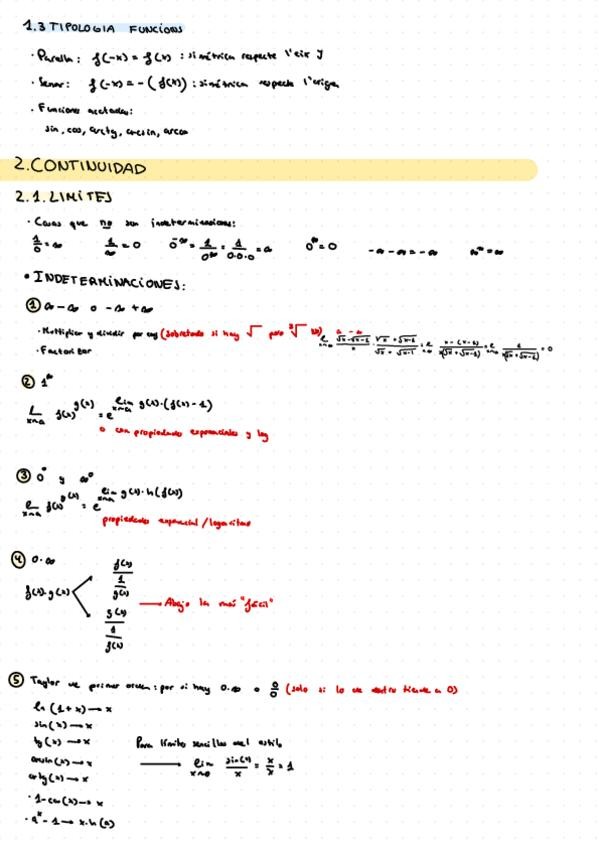 1.3 TIPOLOGIA FUNCIONS
· Parella: f(-x) = f(x) : simètrica respecte l'eix y
· Senar: f(-x) = -(f(x)) : simètrica respecte l'origen
· Funcions acotadas:
sin, cos, arctg, arcsin, arcos
2. CONTINUIDAD
2.1. LIMITES
· Casos que no son indeterminaciones:
1/0 = ∞ 1/∞ = 0 0^-∞ = 1/0^∞ = 1/0·0·0 = ∞ 0^∞ = 0 -∞-∞ = -∞ ∞^∞ = ∞
• INDETERMINACIONES:
① ∞-∞ o -∞+∞
· Multiplicar y dividir por conj (sobretodo si hay √
· Factorizar
② 1^∞
L x→a f(x)^g(x) = e^lim x→a g(x)·(f(x)-1)
o con propiedades exponenciales y log
③ 0^0 y ∞^0
x→a f(x)^g(x) = e^lim x→a g(x)·ln(f(x))
propiedades exponencial/logaritmo
④ 0·∞
f(x)·g(x)
f(x) / 1/g(x)
g(x) / 1/f(x)
Abajo la más "fácil"
⑤ Taylor de primer orden: por si hay 0·∞ o 0/0 (solo si lo de dentro tiende a 0)
ln(1+x) → x
sin(x) → x
tg(x) → x
arcsin(x) → x
arctg(x) → x
· 1-cos(x) → x
· a^x - 1 → x·ln(a)
Para límites sencillos del estilo
lim x→0 sin(x)/x = x/x = 1